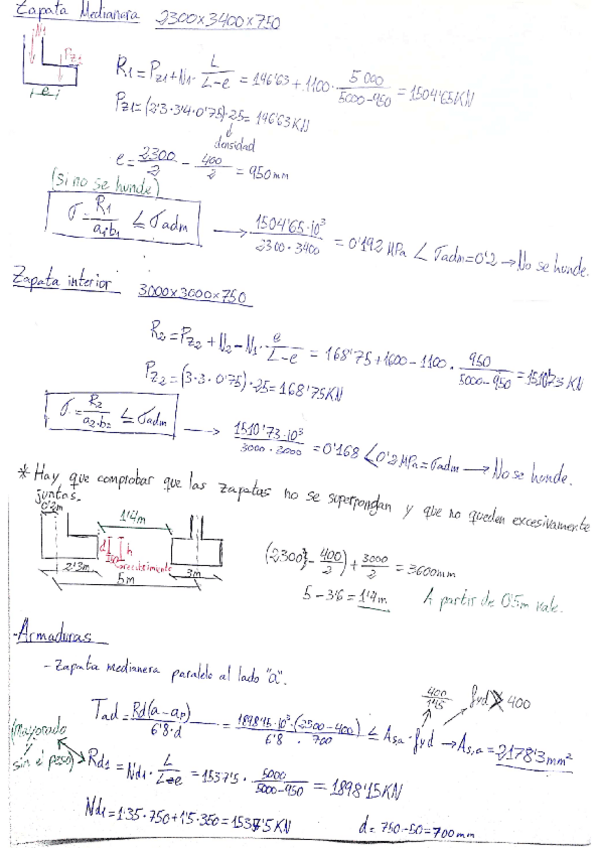 Zapata Medianera 2300x3400x750
N1
Pz1
e
R1 = Pz1 + N1 · L / L-e = 146'63 + 1100 · 5000 / 5000-950 = 1504'65 KN
Pz1 = (2'3·3'4·0'75)·25 = 146'63 KN
densidad
e = 2300/2 - 400/2 = 950 mm
(si no se hunde)
σ = R1 / a1·b1 ≤ σadm → 1504'65·10³ / 2300·3400 = 0'192 MPa < σadm = 0'2 → No se hunde.
Zapata interior 3000x3000x750
R2 = Pz2 + N2 - N1 · e / L-e = 168'75 + 1600 - 1100 · 950 / 5000-950 = 1510'73 KN
Pz2 = (3·3·0'75)·25 = 168'75 KN
σ = R2 / a2·b2 ≤ σadm → 1510'73·10³ / 3000·3000 = 0'168 < 0'2 MPa = σadm → No se hunde.
* Hay que comprobar que las zapatas no se superpongan y que no queden excesivamente
juntas.
0'2m
1'4m
d h
recubrimiento
2'3m
3m
5m
(2300 - 400/2) + 3000/2 = 3600mm
5 - 3'6 = 1'4m
A partir de 0'5m vale.
- Armaduras
- Zapata medianera paralelo al lado "a".
400 / 1'15 fyd 400
Tad = Rd(a-ap) / 6'8·d = 1898'15·10³·(2300-400) / 6'8 · 700 ≤ As,a · fyd → As,a = 2178'3 mm²
(mayorado
sin el peso)
Rd1 = Nd1 · L / L-e = 1537'5 · 5000 / 5000-950 = 1898'15 KN
Nd1 = 1'35·750 + 1'5·350 = 1537'5 KN
d = 750-50 = 700mm